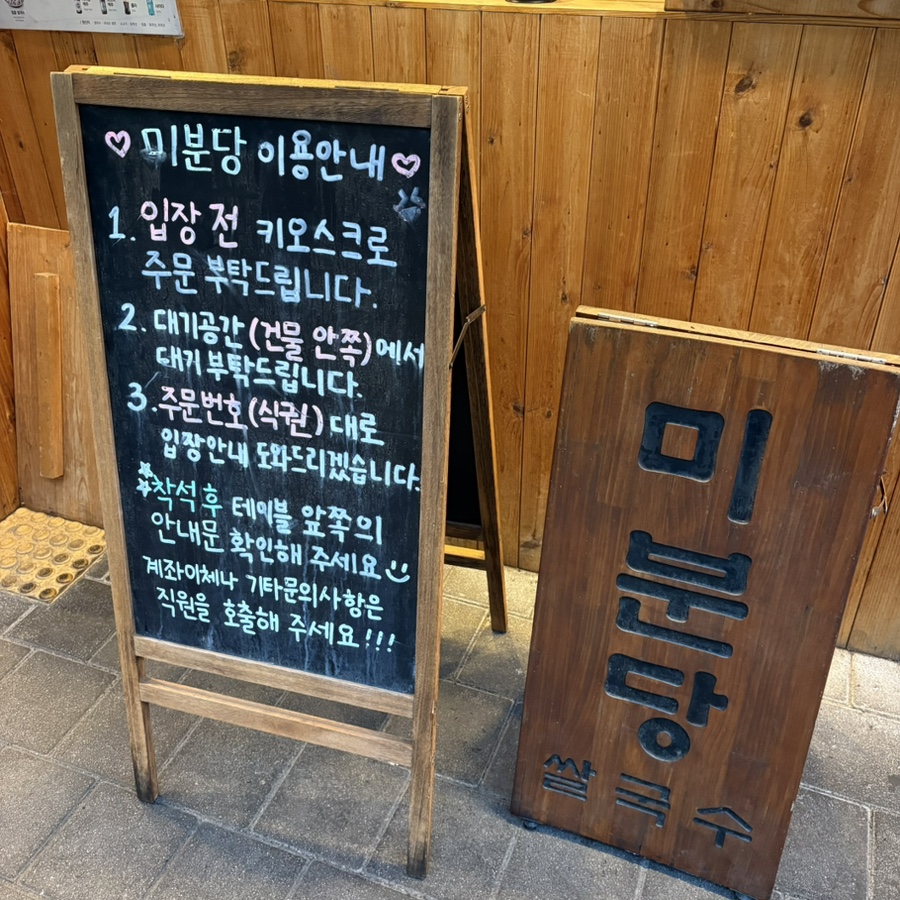 ♡미분당 이용안내♡
1. 입장 전 키오스크로
주문 부탁드립니다.
2. 대기공간(건물 안쪽)에서
대기 부탁드립니다.
3. 주문번호(식권) 대로
입장안내 도와드리겠습니다.
착석 후 테이블 앞쪽의
안내문 확인해 주세요
계좌이체나 기타문의사항은
직원을 호출해 주세요!!!
미분당
쌀국수